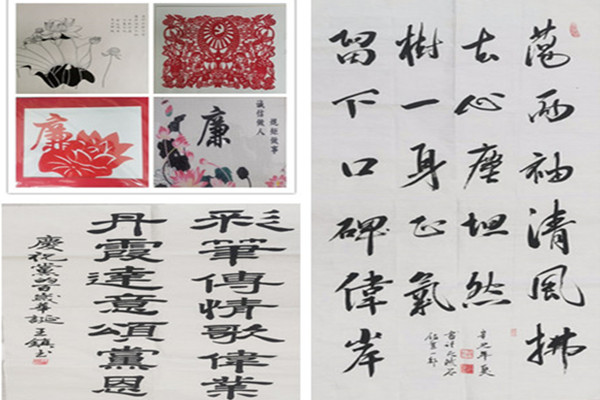 廉
廉
诚信做人
规矩做事
彩筆傳情歌偉業
丹霞達意頌黨恩
慶祝黨的百歲華誕
蕩兩袖清風拂
去心塵坦然
樹一身正氣
留下口碑偉岸
辛丑年夏